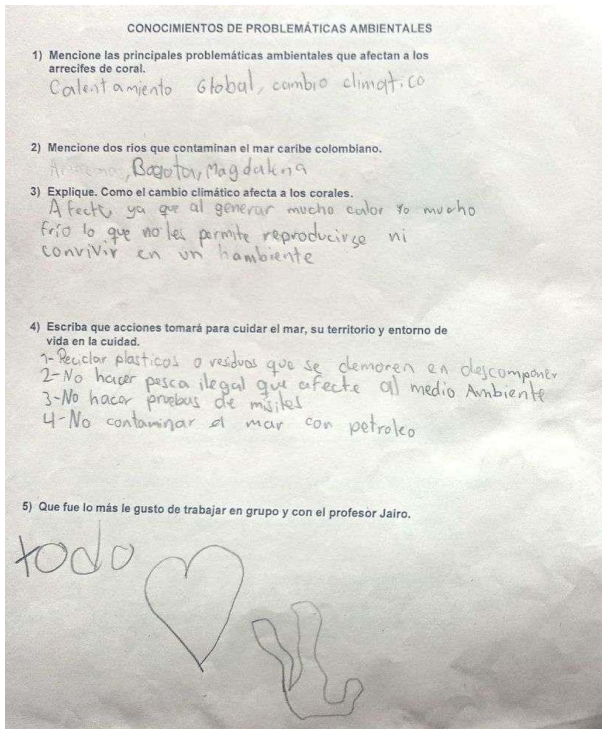 CONOCIMIENTOS DE PROBLEMÁTICAS AMBIENTALES
1) Mencione las principales problemáticas ambientales que afectan a los
arrecifes de coral.
Calentamiento Global, cambio climatico
2) Mencione dos rios que contaminan el mar caribe colombiano.
, Bogota, Magdalena
3) Explique. Como el cambio climático afecta a los corales.
Afecta, ya que al generar mucho calor yo mucho
frío lo que no les permite reproducirse ni
convivir en un hambiente
4) Escriba que acciones tomará para cuidar el mar, su territorio y entorno de
vida en la cuidad.
1-Reciclar plasticos o residuos que se demoren en descomponer
2-No hacer pesca ilegal que afecte al medio Ambiente
3-No hacer pruebas de misiles
4-No contaminar el mar con petroleo
5) Que fue lo más le gusto de trabajar en grupo y con el profesor Jairo.
todo